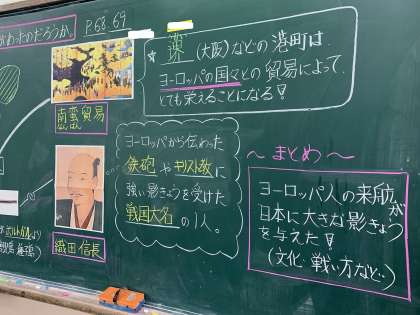 がわったのだろうか。
P.68.69
★堺(大阪)などの港町は、
ヨーロッパの国々との貿易によって、
とても栄えることになる!
南蛮貿易
ヨーロッパから伝わった
鉄砲やキリスト教に
強い影きょうを受けた
戦国大名の1人。
織田信長
〜まとめ〜
ヨーロッパ人の来航が
日本に大きな影きょう
を与えた!
(文化・戦い方など…)